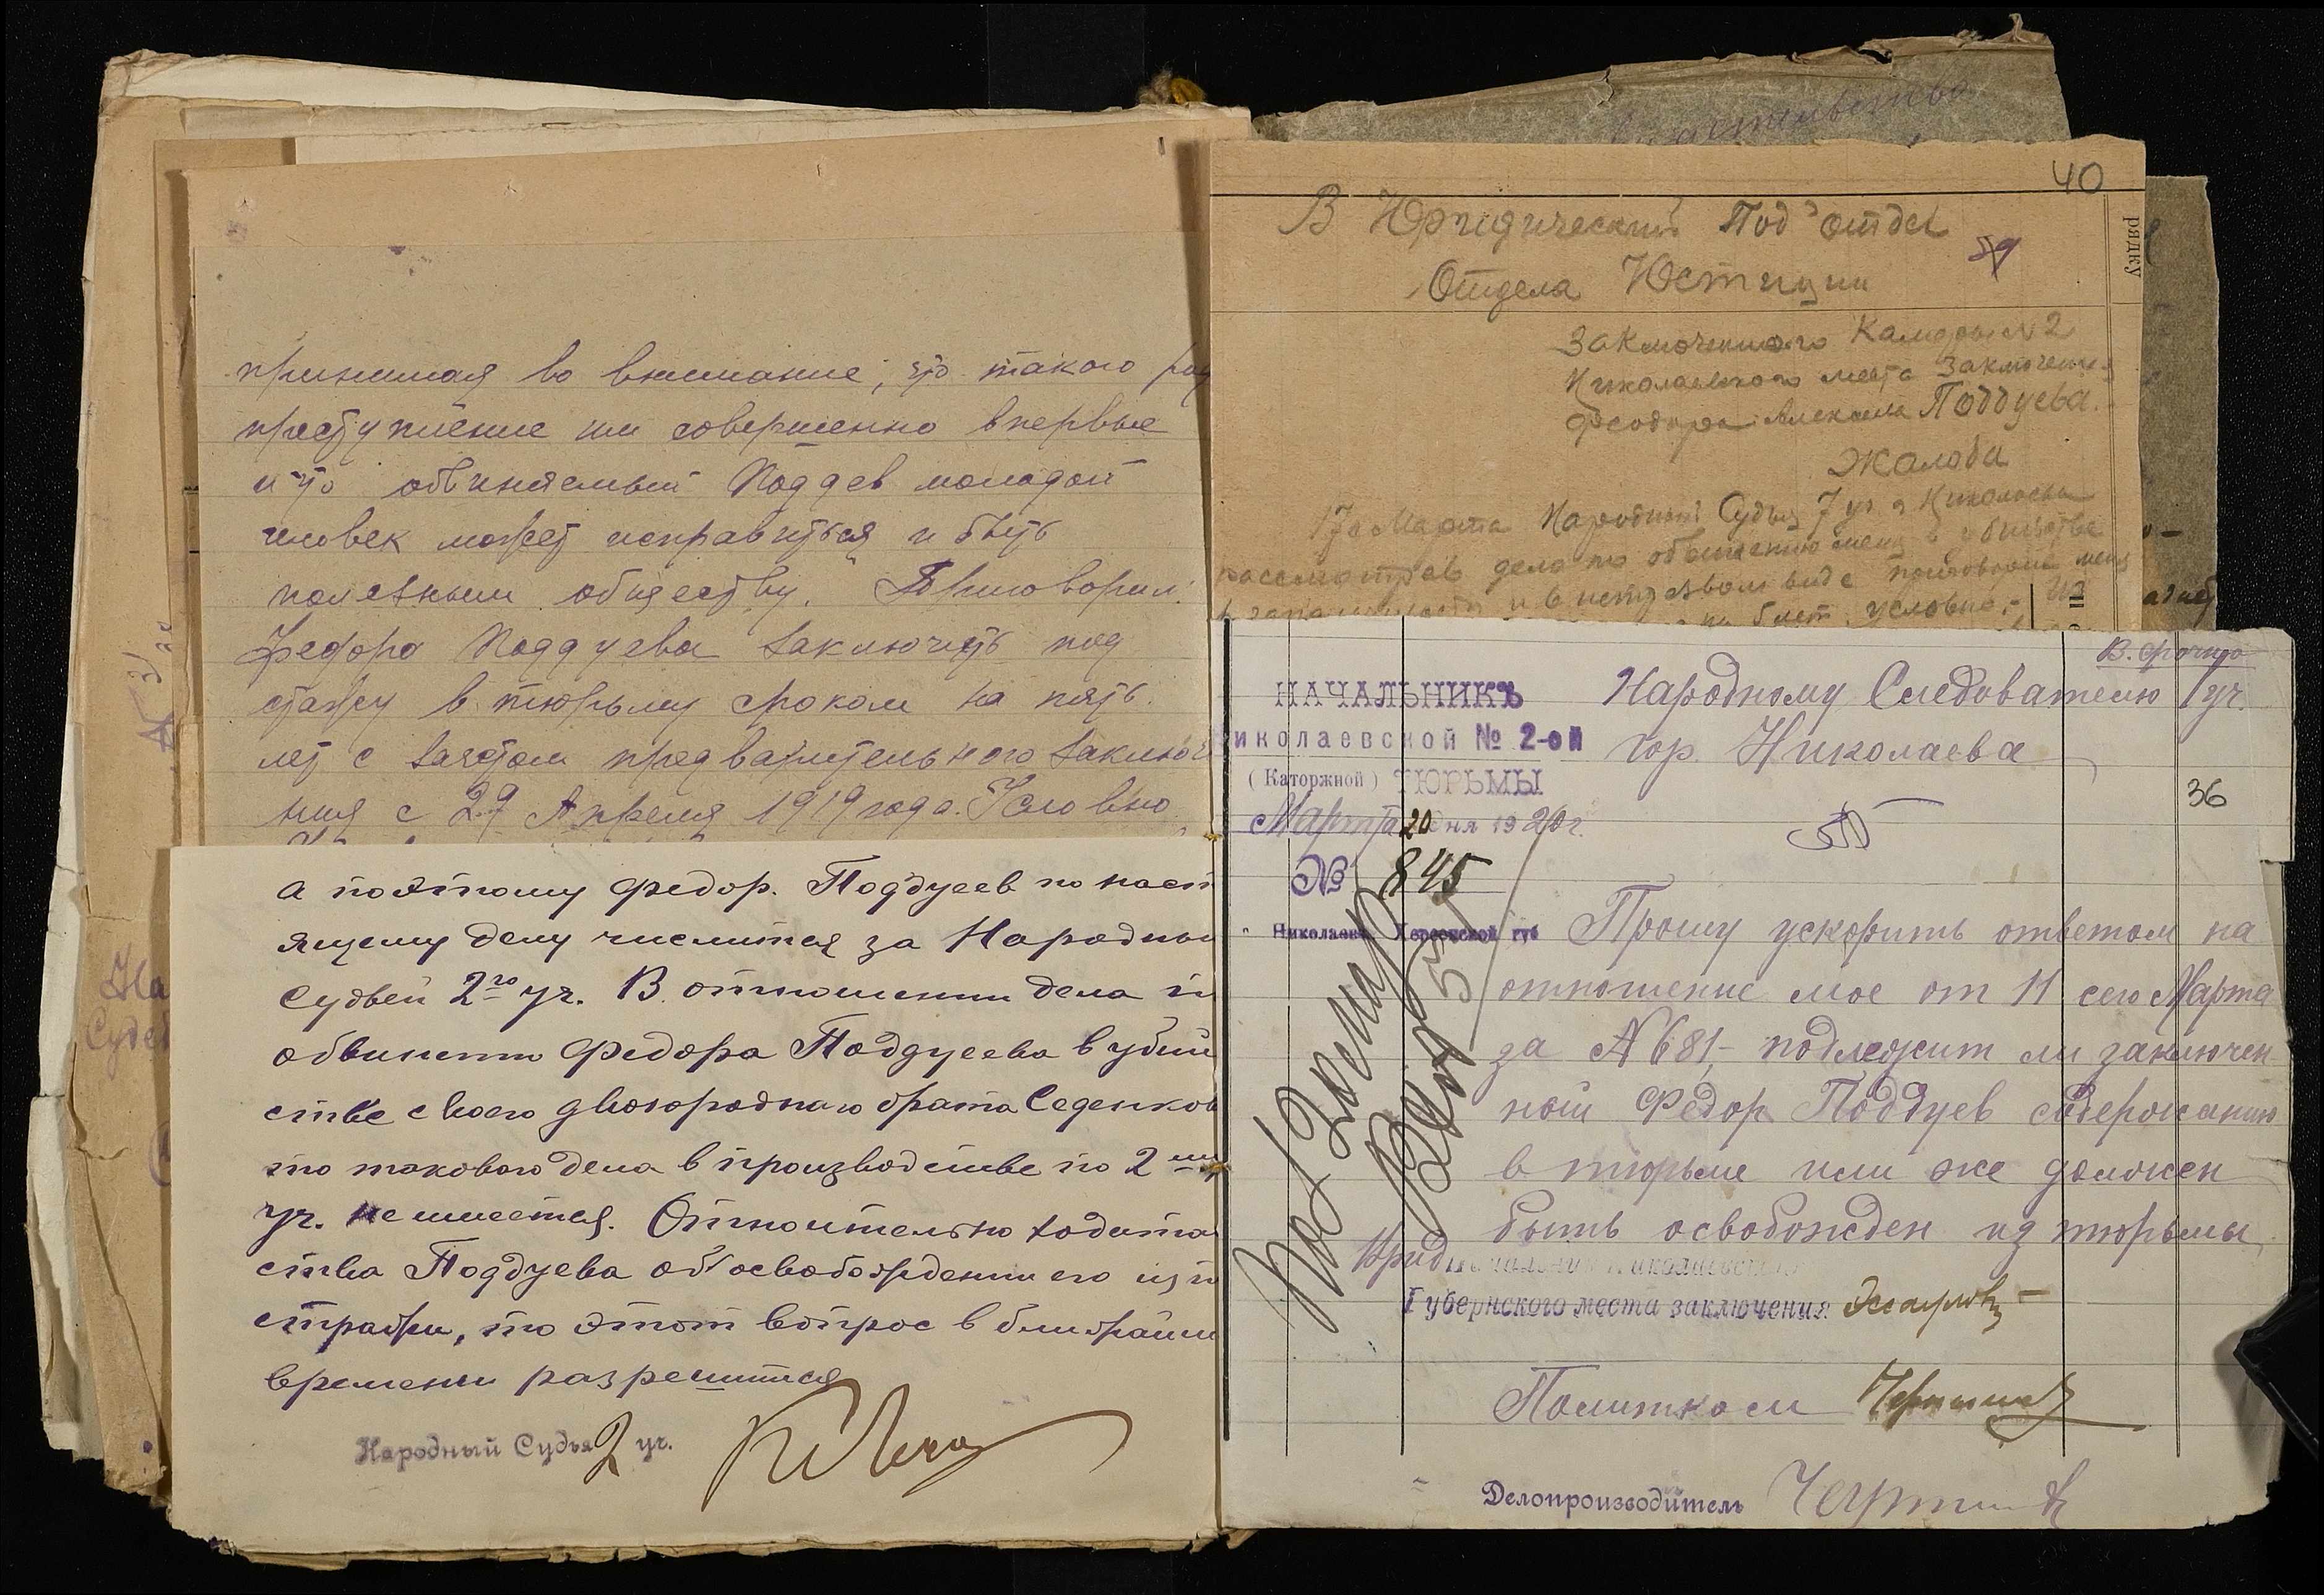 принимая во внимание, что такого род
преступление им совершенно впервые
и что обвиняемый Поддев молодой
человек может исправиться и быть
полезным обществу, Приговорил:
Федора Поддуева заключить под
стражу в тюрьму сроком на пять
лет с зачетом предварительного заклю
ния с 29 Апреля 1919 года. Условно
а поэтому Федор. Поддуеев по наст
ящему делу числится за Народным
Судьей 2го уч. В отношении дела п
обвинению Федора Поддуеева в убий
стве своего двоюроднаго брата Седенков
то такового дела в производстве по 2му
уч. не имеется. Относительно ходата
ства Поддуева об освобождении его из п
стражи, то этот вопрос в ближайши
времени разрешится
Народный Судья 2 уч.
40
В Юридический Под'отдел
39
Отдела Юстиции
рядку
Заключенного Камеры № 2
Николаевского места Заключения
Феодора Алексеева Поддуева.
Жалоба
17го Марта Народный Судья 7 уч. г. Николаева
рассмотрев дело по обвинению меня в убийстве
и в нетрезвом виде приговорил меня
лет условно. Из
В. срочно
НАЧАЛЬНИКЪ
Николаевской № 2-ой
(Каторжной) ТЮРЬМЫ
Марта 20 дня 1920 г.
№ 845
Николаевъ Херсонской губ
Народному Следователю 7 уч.
гор. Николаева
36
Прошу ускорить ответом на
отношение мое от 11 сего Марта
за № 681, подлежит ли заключен
ный Федор Поддуев содержанию
в тюрьме или же должен
быть освобожден из тюрьмы
Начальник Николаевского
Губернского места заключения
Политком
Делопроизводитель